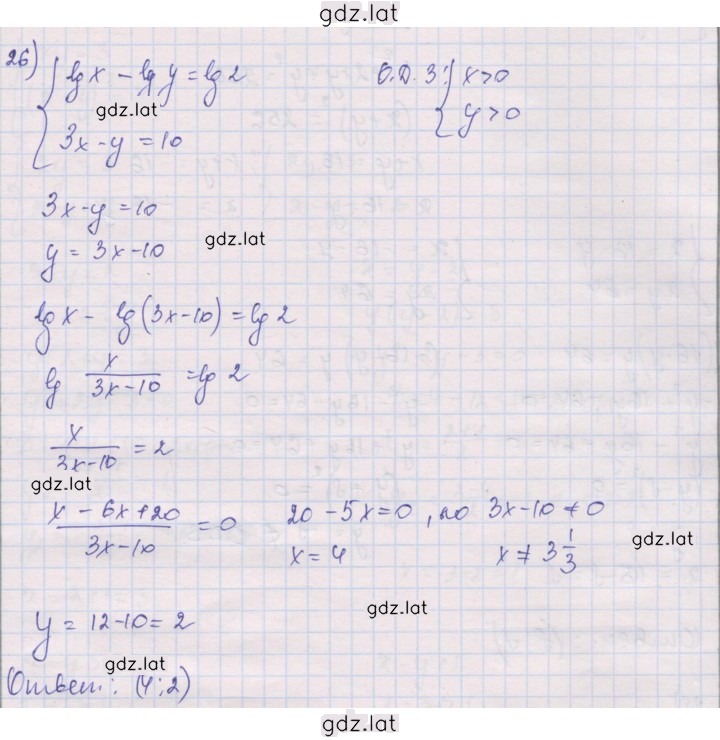 gdz.lat
26) { lg x - lg y = lg 2 О.Д.З: { x > 0
gdz.lat y > 0
3x - y = 10
3x - y = 10
y = 3x - 10 gdz.lat
lg x - lg (3x - 10) = lg 2
lg x/(3x - 10) = lg 2
x/(3x - 10) = 2
gdz.lat
(x - 6x + 20)/(3x - 10) = 0 20 - 5x = 0, но 3x - 10 ≠ 0
x = 4 x ≠ 3 1/3 gdz.lat
gdz.lat
y = 12 - 10 = 2
gdz.lat
Ответ: (4; 2)
gdz.lat